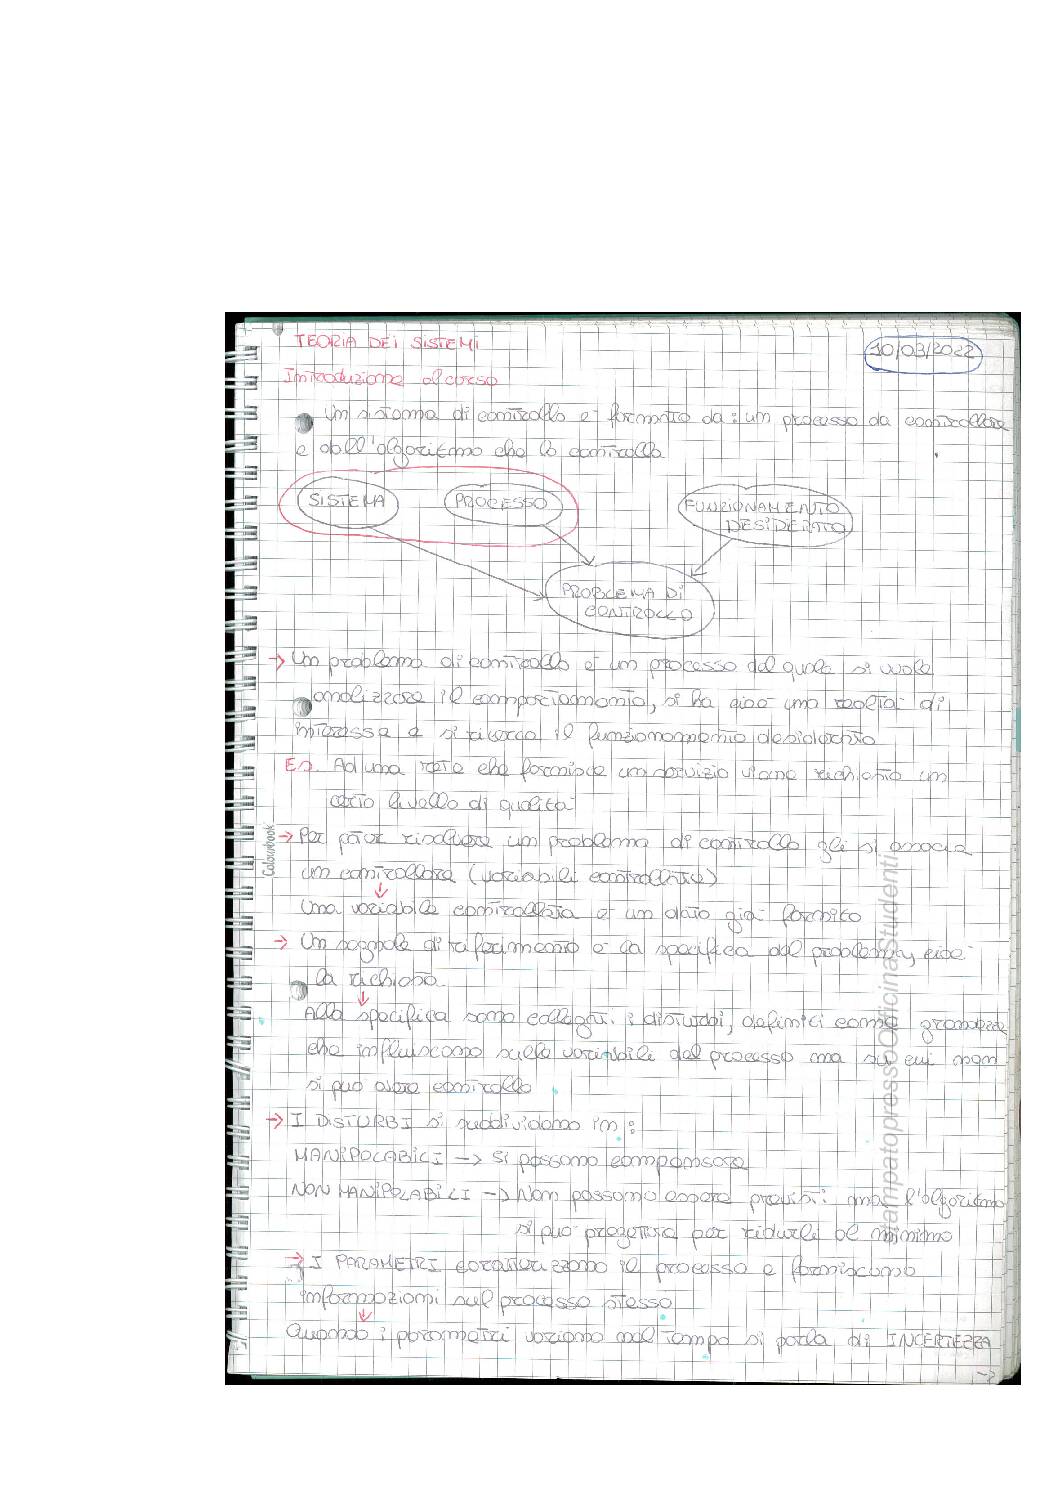 TEORIA DEI SISTEMI
10/03/2022
Introduzione al corso
Un sistema di controllo è formato da: un processo da controllare
e dall'algoritmo che lo controlla
SISTEMA
PROCESSO
FUNZIONAMENTO
DESIDERATO
PROBLEMA DI
CONTROLLO
→ Un problema di controllo è un processo del quale si vuole
analizzare il comportamento, si ha cioè una realtà di
interesse e si ricerca il funzionamento desiderato
Es. Ad una rete che fornisce un servizio viene richiesto un
certo livello di qualità
→ Per poter risolvere un problema di controllo gli si associa
un controllore (variabili controllate)
↓
Una variabile controllata è un dato già fornito
→ Un segnale di riferimento è la specifica del problema, cioè
la richiesta
↓
Alla specifica sono collegati i disturbi, definiti come grandezze
che influiscono sulle variabile del processo ma su cui non
si può avere controllo
→ I DISTURBI si suddividono in:
MANIPOLABILI → Si possono compensare
NON MANIPOLABILI → Non possono essere previsti ma l'algoritmo
si può progettare per ridurli al minimo
→ I PARAMETRI caratterizzano il processo e forniscono
informazioni sul processo stesso
↓
Quando i parametri variano nel tempo si parla di INCERTEZZA
Colourbook
stampatopressoOfficinaStudenti